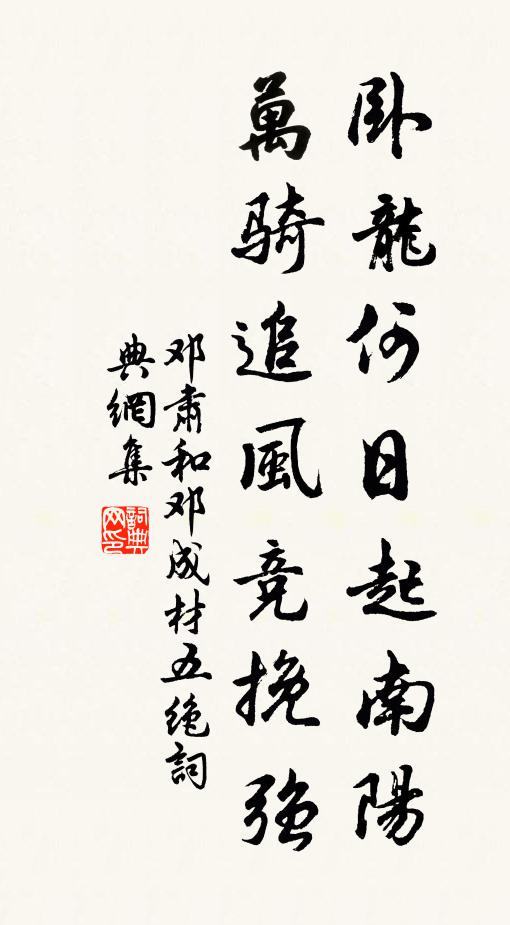 卧龍何日起南陽
萬騎追風竞挽强
邓肅和邓成材五绝詞
典網集
詞典网印